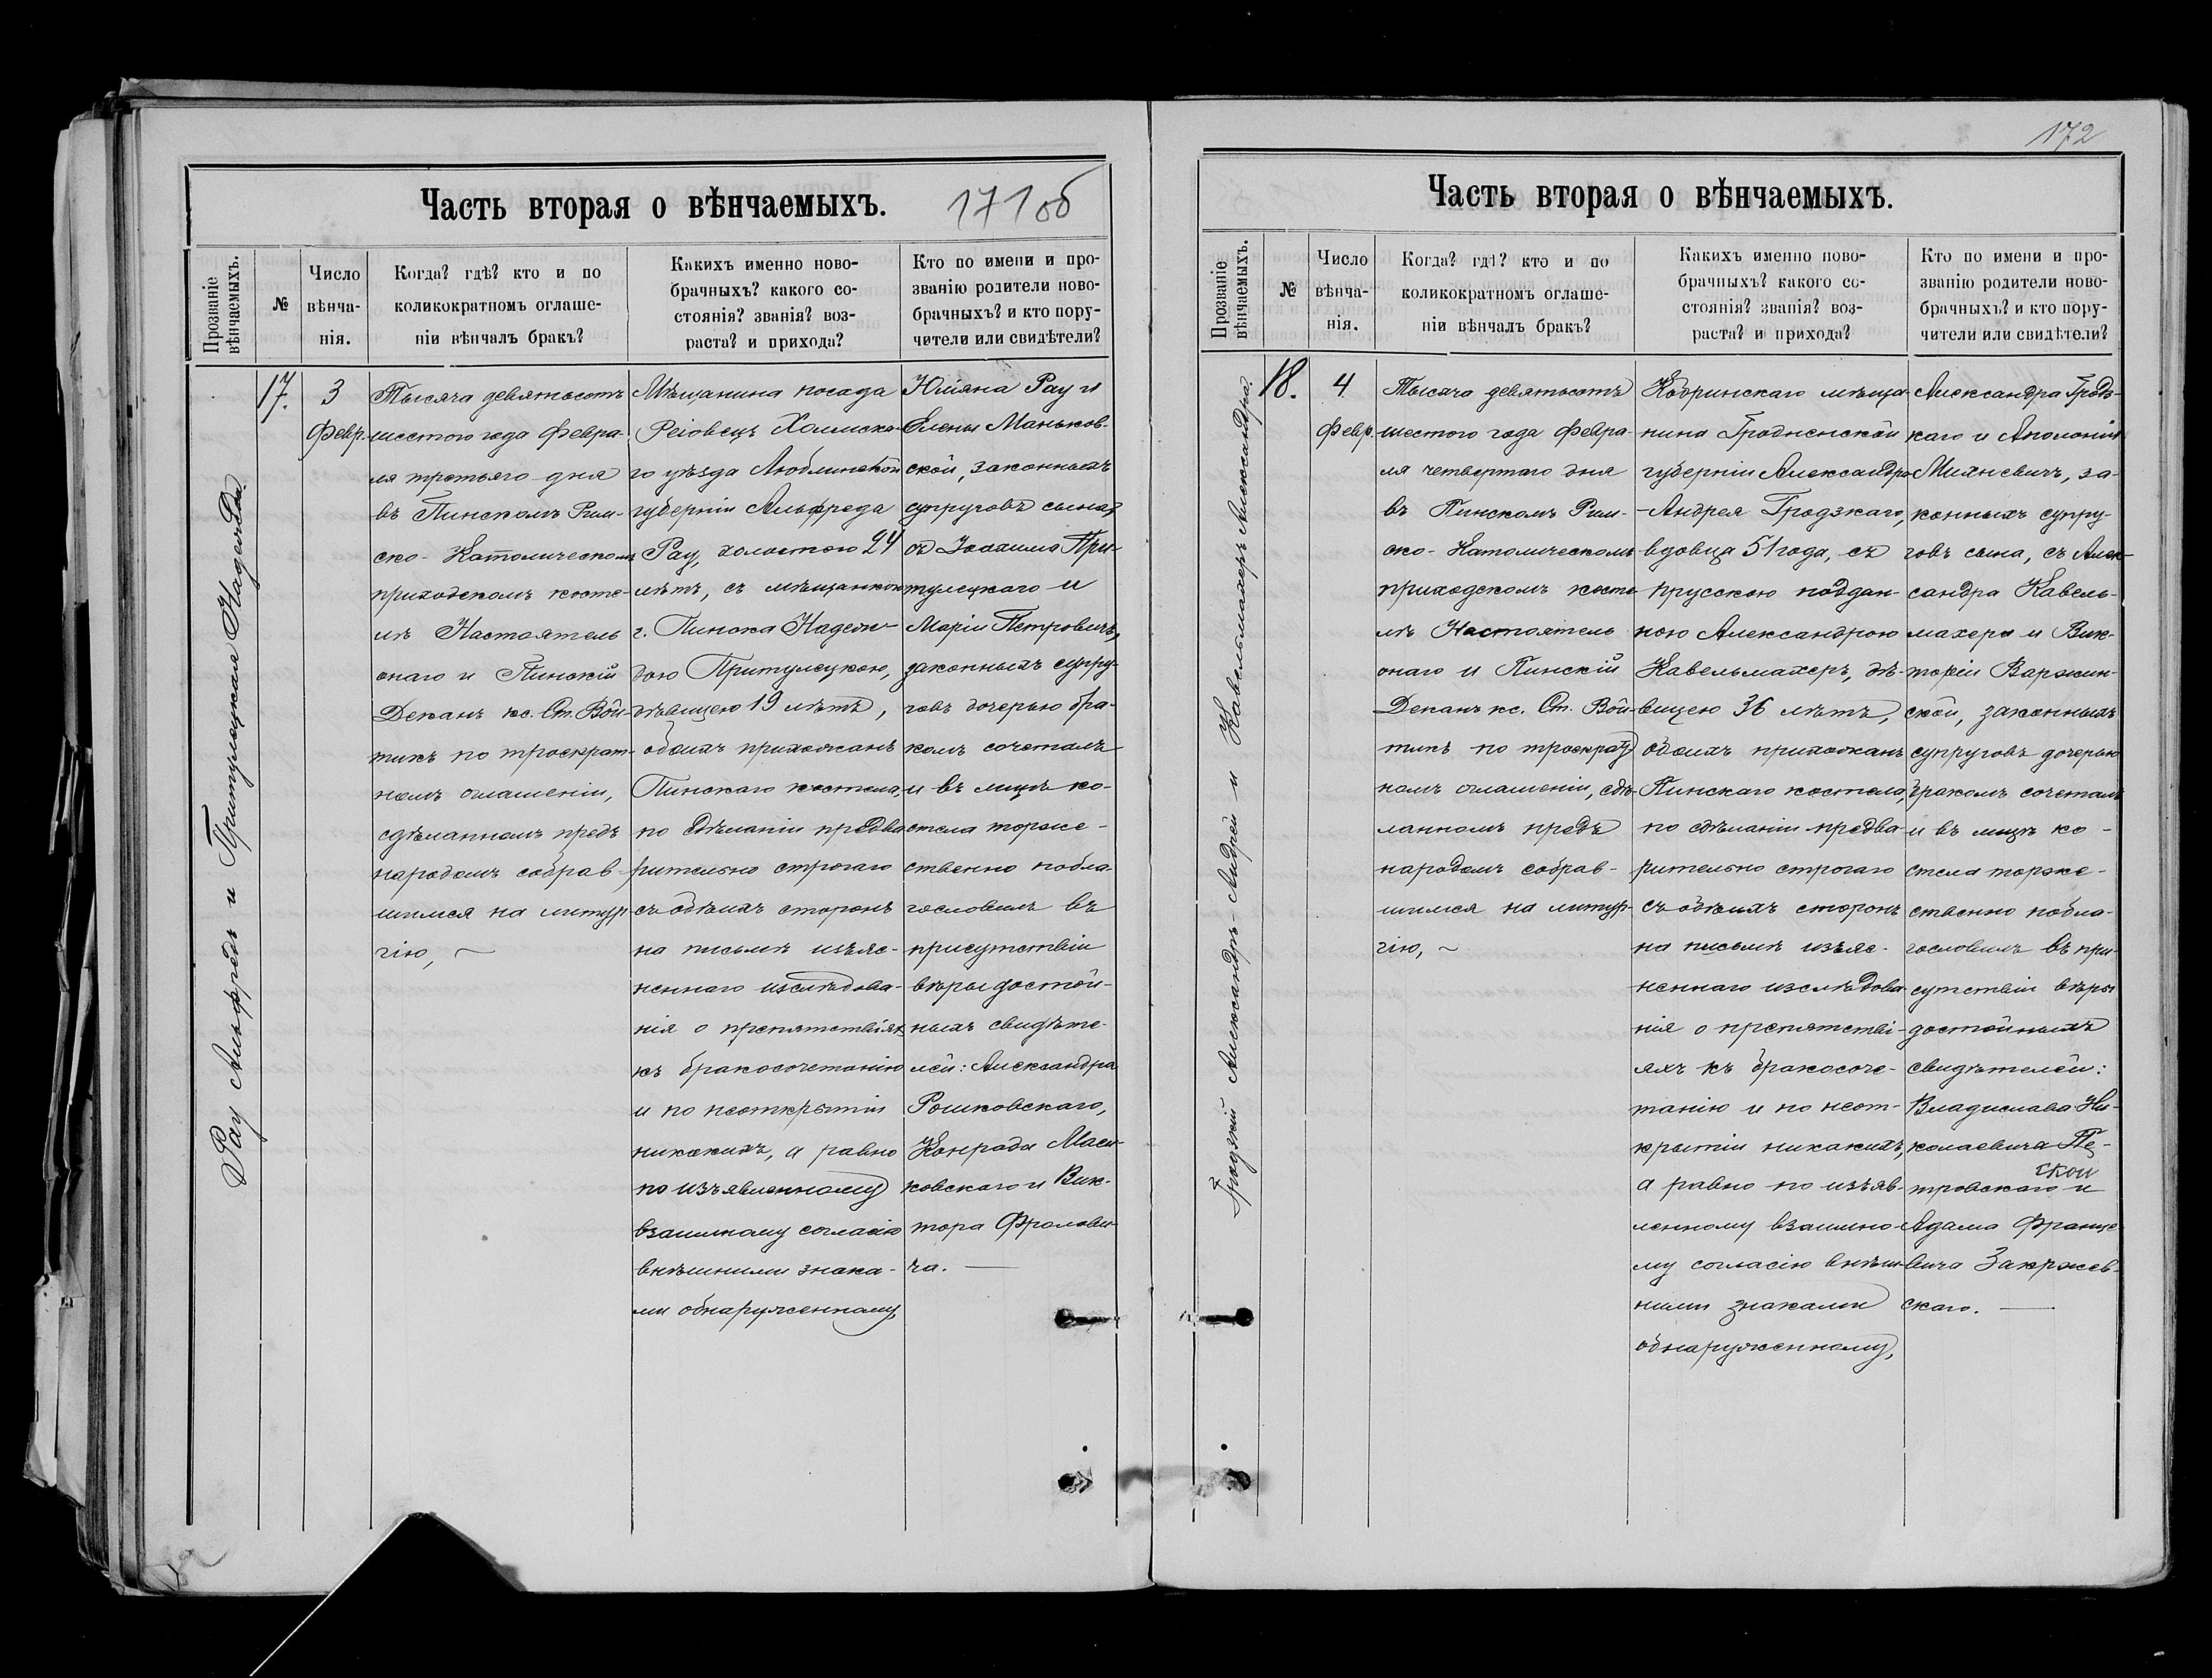 Часть вторая о вѣнчаемыхъ.
171об
Прозваніе
вѣнчаемыхъ.
№
Число
вѣнча-
нія.
Когда? гдѣ? кто и по
коликократномъ оглаше-
ніи вѣнчалъ бракъ?
Какихъ именно ново-
брачныхъ? какого со-
стоянія? званія? воз-
раста? и прихода?
Кто по имени и про-
званію родители ново-
брачныхъ? и кто пору-
чители или свидѣтели?
Рау Альфредъ и Притулецкая Надежда.
17.
3
Февр.
Тысяча девятьсотъ
шестого года Февра-
ля третьяго дня
въ Пинскомъ Рим-
ско-Католическомъ
приходскомъ косте-
лѣ Настоятель
онаго и Пинскій
Деканъ кс. Ст. Вой-
тикъ по троекрат-
номъ оглашеніи,
сдѣланномъ предъ
народомъ собрав-
шимся на литур-
гію, ~
Мѣщанина посада
Реіовецъ Холмска-
го уѣзда Люблинской
губерніи Альфреда
Рау, холостого 24
лѣтъ, съ мѣщанкою
г. Пинска Надеж-
дою Притулецкою,
дѣвицею 19 лѣтъ,
обоихъ прихожанъ
Пинскаго костела,
по сдѣланіи предва-
рительно строгаго
съ обѣихъ сторонъ
на письмѣ изъяс-
неннаго изслѣдова-
нія о препятствіяхъ
къ бракосочетанію
и по неоткрытіи
никакихъ, а равно
по изъявленному
взаимному согласію
внѣшними знака-
ми обнаруженному,
Юліяна Рау и
Елены Маньков-
ской, законныхъ
супруговъ сына,
съ Іоахима При-
тулецкаго и
Маріи Петровичъ,
законныхъ супру-
говъ дочерью бра-
комъ сочеталъ
и въ лицѣ ко-
стела торже-
ственно побла-
гословилъ въ
присутствіи
вѣры достой-
ныхъ свидѣте-
лей: Александра
Рошковскаго,
Конрада Маси-
ковскаго и Вик-
тора Фролови-
ча. —
172
Часть вторая о вѣнчаемыхъ.
Прозваніе
вѣнчаемыхъ.
№
Число
вѣнча-
нія.
Когда? гдѣ? кто и по
коликократномъ оглаше-
ніи вѣнчалъ бракъ?
Какихъ именно ново-
брачныхъ? какого со-
стоянія? званія? воз-
раста? и прихода?
Кто по имени и про-
званію родители ново-
брачныхъ? и кто пору-
чители или свидѣтели?
Гродзкій Александръ-Андрей и Кавельмахеръ Александра.
18.
4
Февр.
Тысяча девятьсотъ
шестого года Февра-
ля четвертаго дня
въ Пинскомъ Рим-
ско-Католическомъ
приходскомъ косте-
лѣ Настоятель
онаго и Пинскій
Деканъ кс. Ст. Вой-
тикъ по троекрат-
номъ оглашеніи, сдѣ-
ланномъ предъ
народомъ собрав-
шимся на литур-
гію, ~
Кобринскаго мѣща-
нина Гродненской
губерніи Александра
-Андрея Гродзкаго,
вдовца 51 года, съ
прусскою поддан-
ною Александрою
Кавельмахеръ, дѣ-
вицею 36 лѣтъ,
обоихъ прихожанъ
Пинскаго костела,
по сдѣланіи предва-
рительно строгаго
съ обѣихъ сторонъ
на письмѣ изъяс-
неннаго изслѣдова-
нія о препятстві-
яхъ къ бракосоче-
танію и по неот-
крытіи никакихъ,
а равно по изъяв-
ленному взаимно-
му согласію внѣш-
ними знаками
обнаруженному,
Александра Гродз-
каго и Аполоніи
Михневичъ, за-
конныхъ супру-
говъ сына, съ Алек-
сандра Кавель-
махера и Вик-
торіи Варжин-
ской, законныхъ
супруговъ дочерью
бракомъ сочеталъ
и въ лицѣ ко-
стела торже-
ственно побла-
гословилъ въ при-
сутствіи вѣры
достойныхъ
свидѣтелей:
Владислава Ни-
колаевича Пе-
ской
тровскаго и
Адама Франце-
вича Закржев-
скаго. —